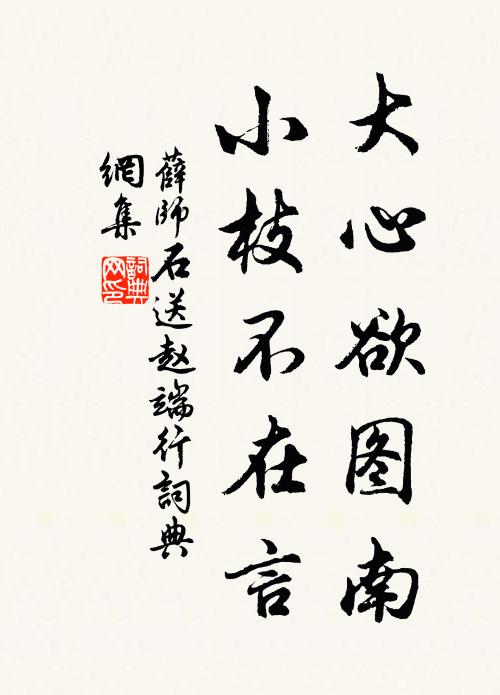 大心欲图南
小枝不在言
薛師石送赵端行詞典
網集
詞典
网印